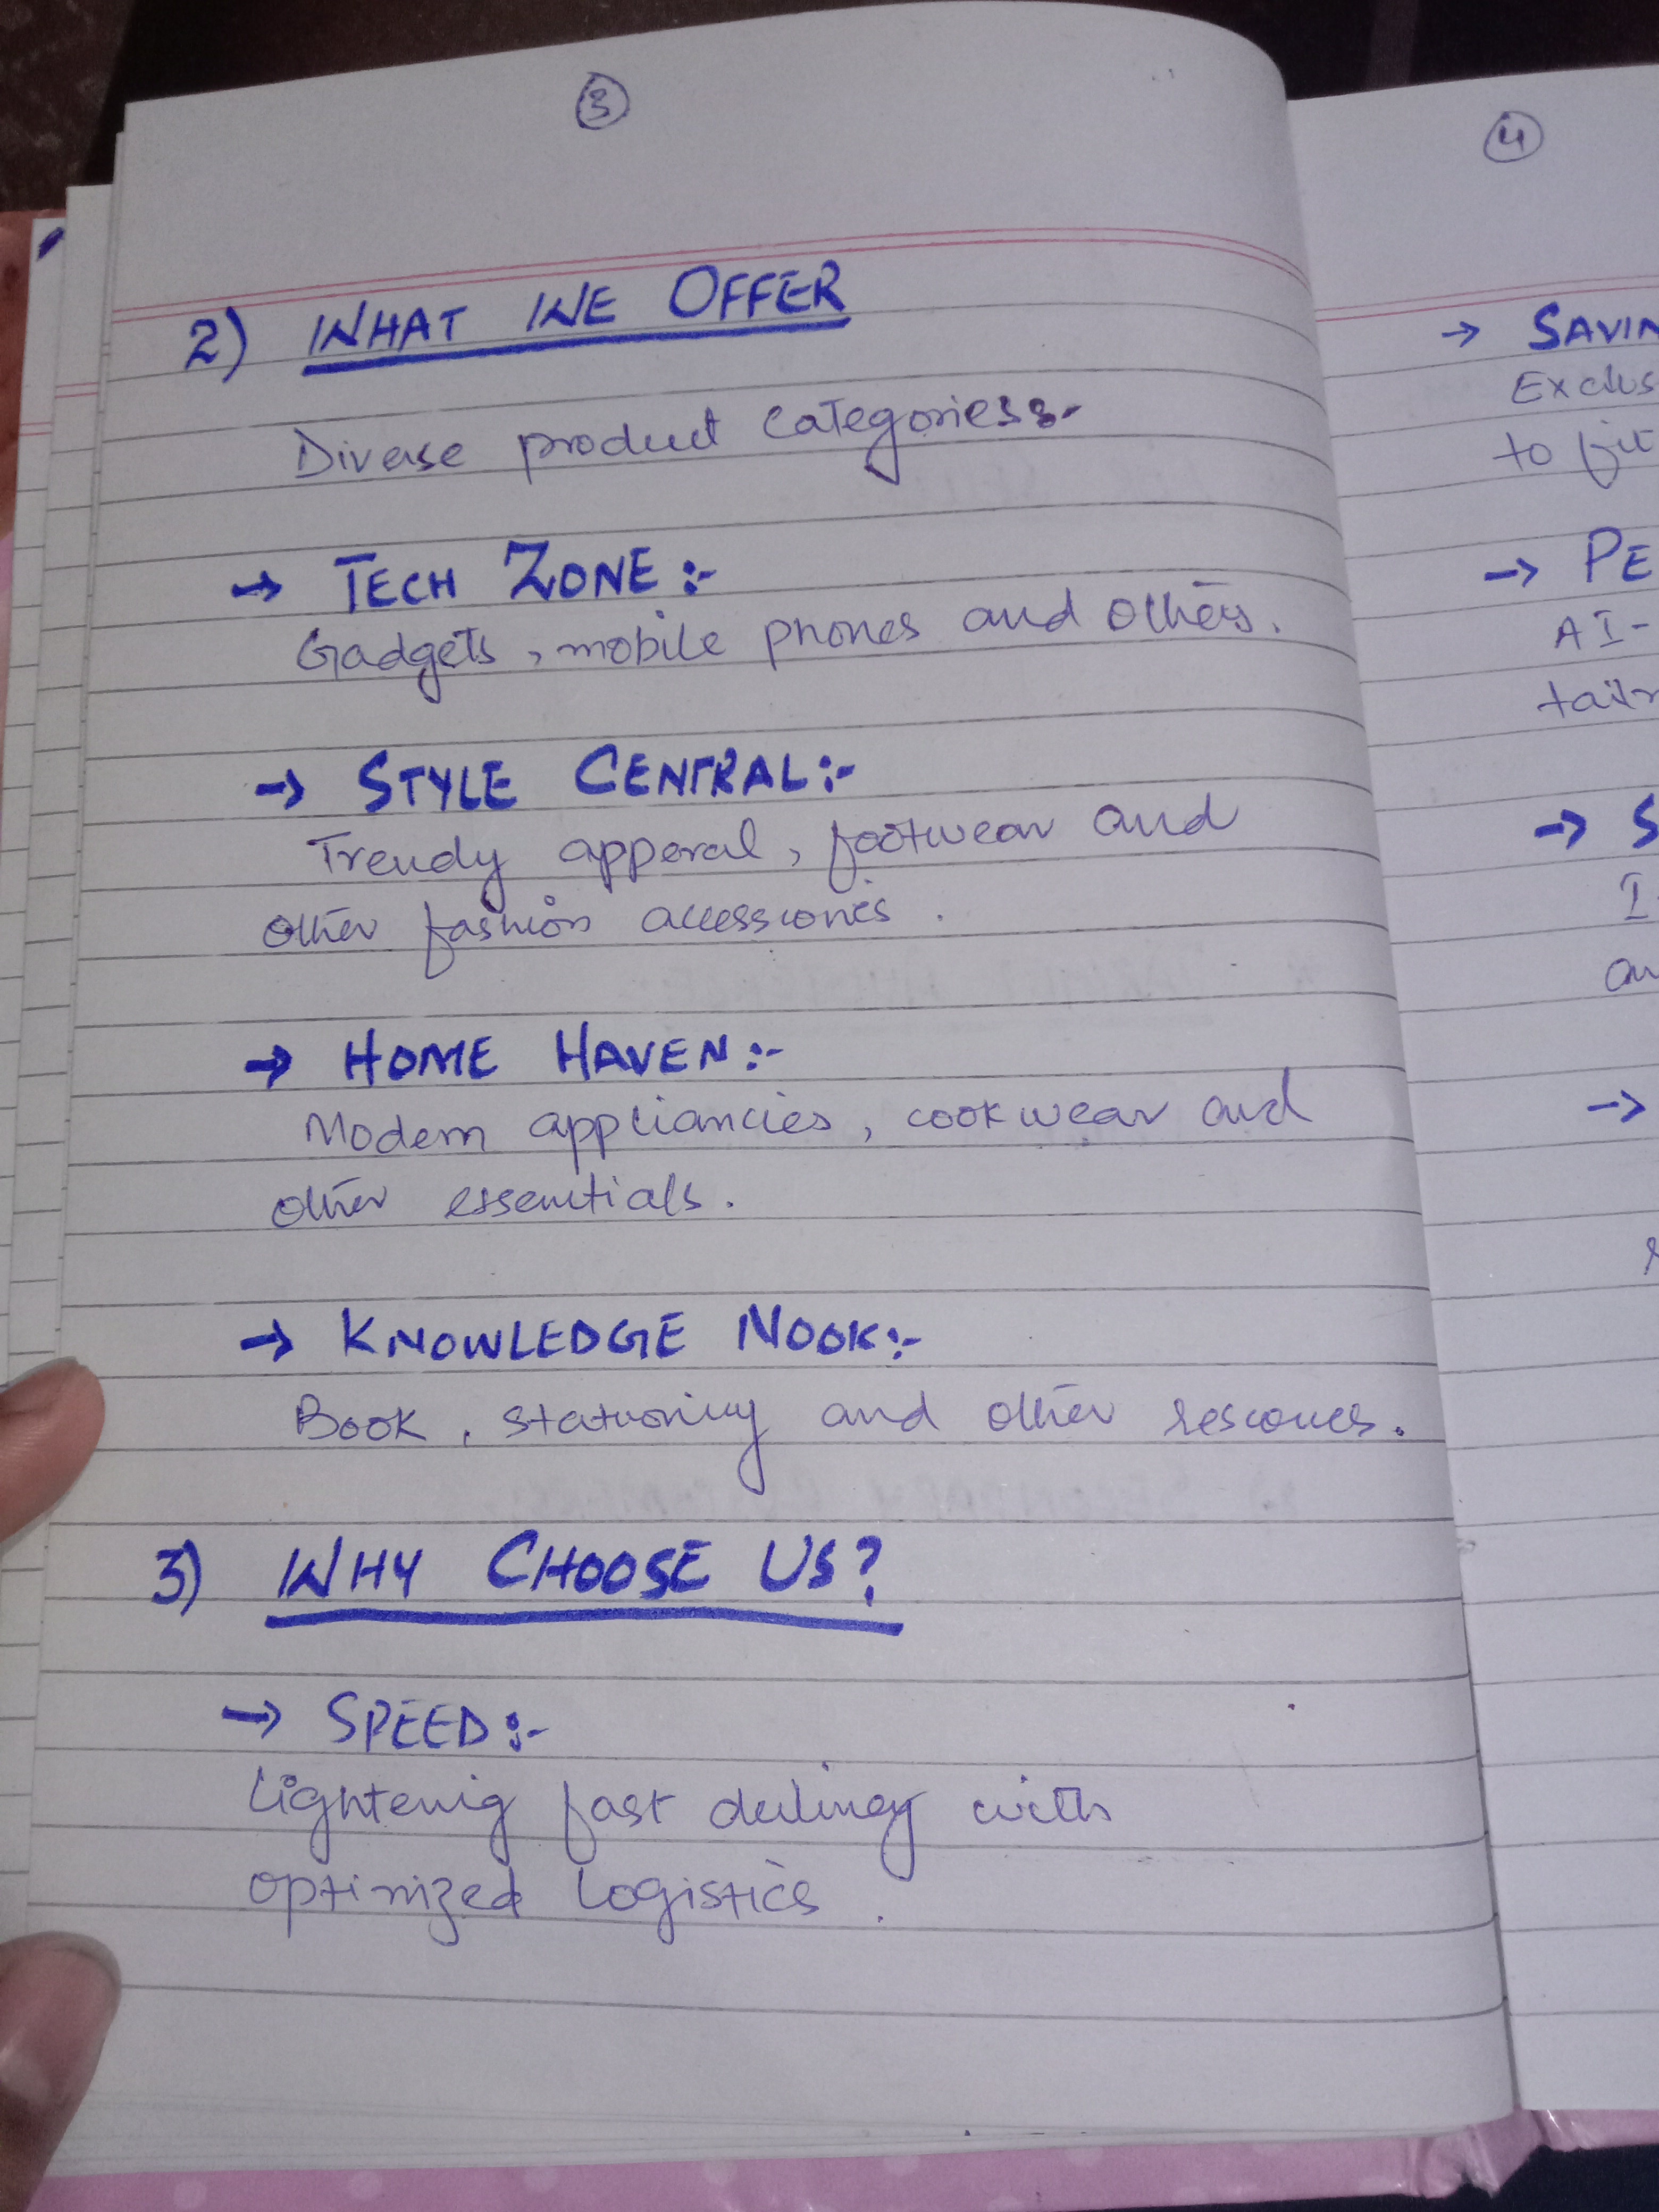 3
2) WHAT WE OFFER
Diverse product categoriess-
→ TECH ZONE:-
Gadgets, mobile phones and others.
→ STYLE CENTRAL:-
Trendy apperal, footwear and
other fashion accessories.
→ HOME HAVEN:-
Modern appliancies, cookwear and
other essentials.
→ KNOWLEDGE NOOK:-
Book, stationiry and other
3) WHY CHOOSE US?
→ SPEED:-
Lightenig fast delivery with
optimized Logistics.
4
→ SAVIN
Exclus
to fit
→ PE
AI-
→ S
I
→